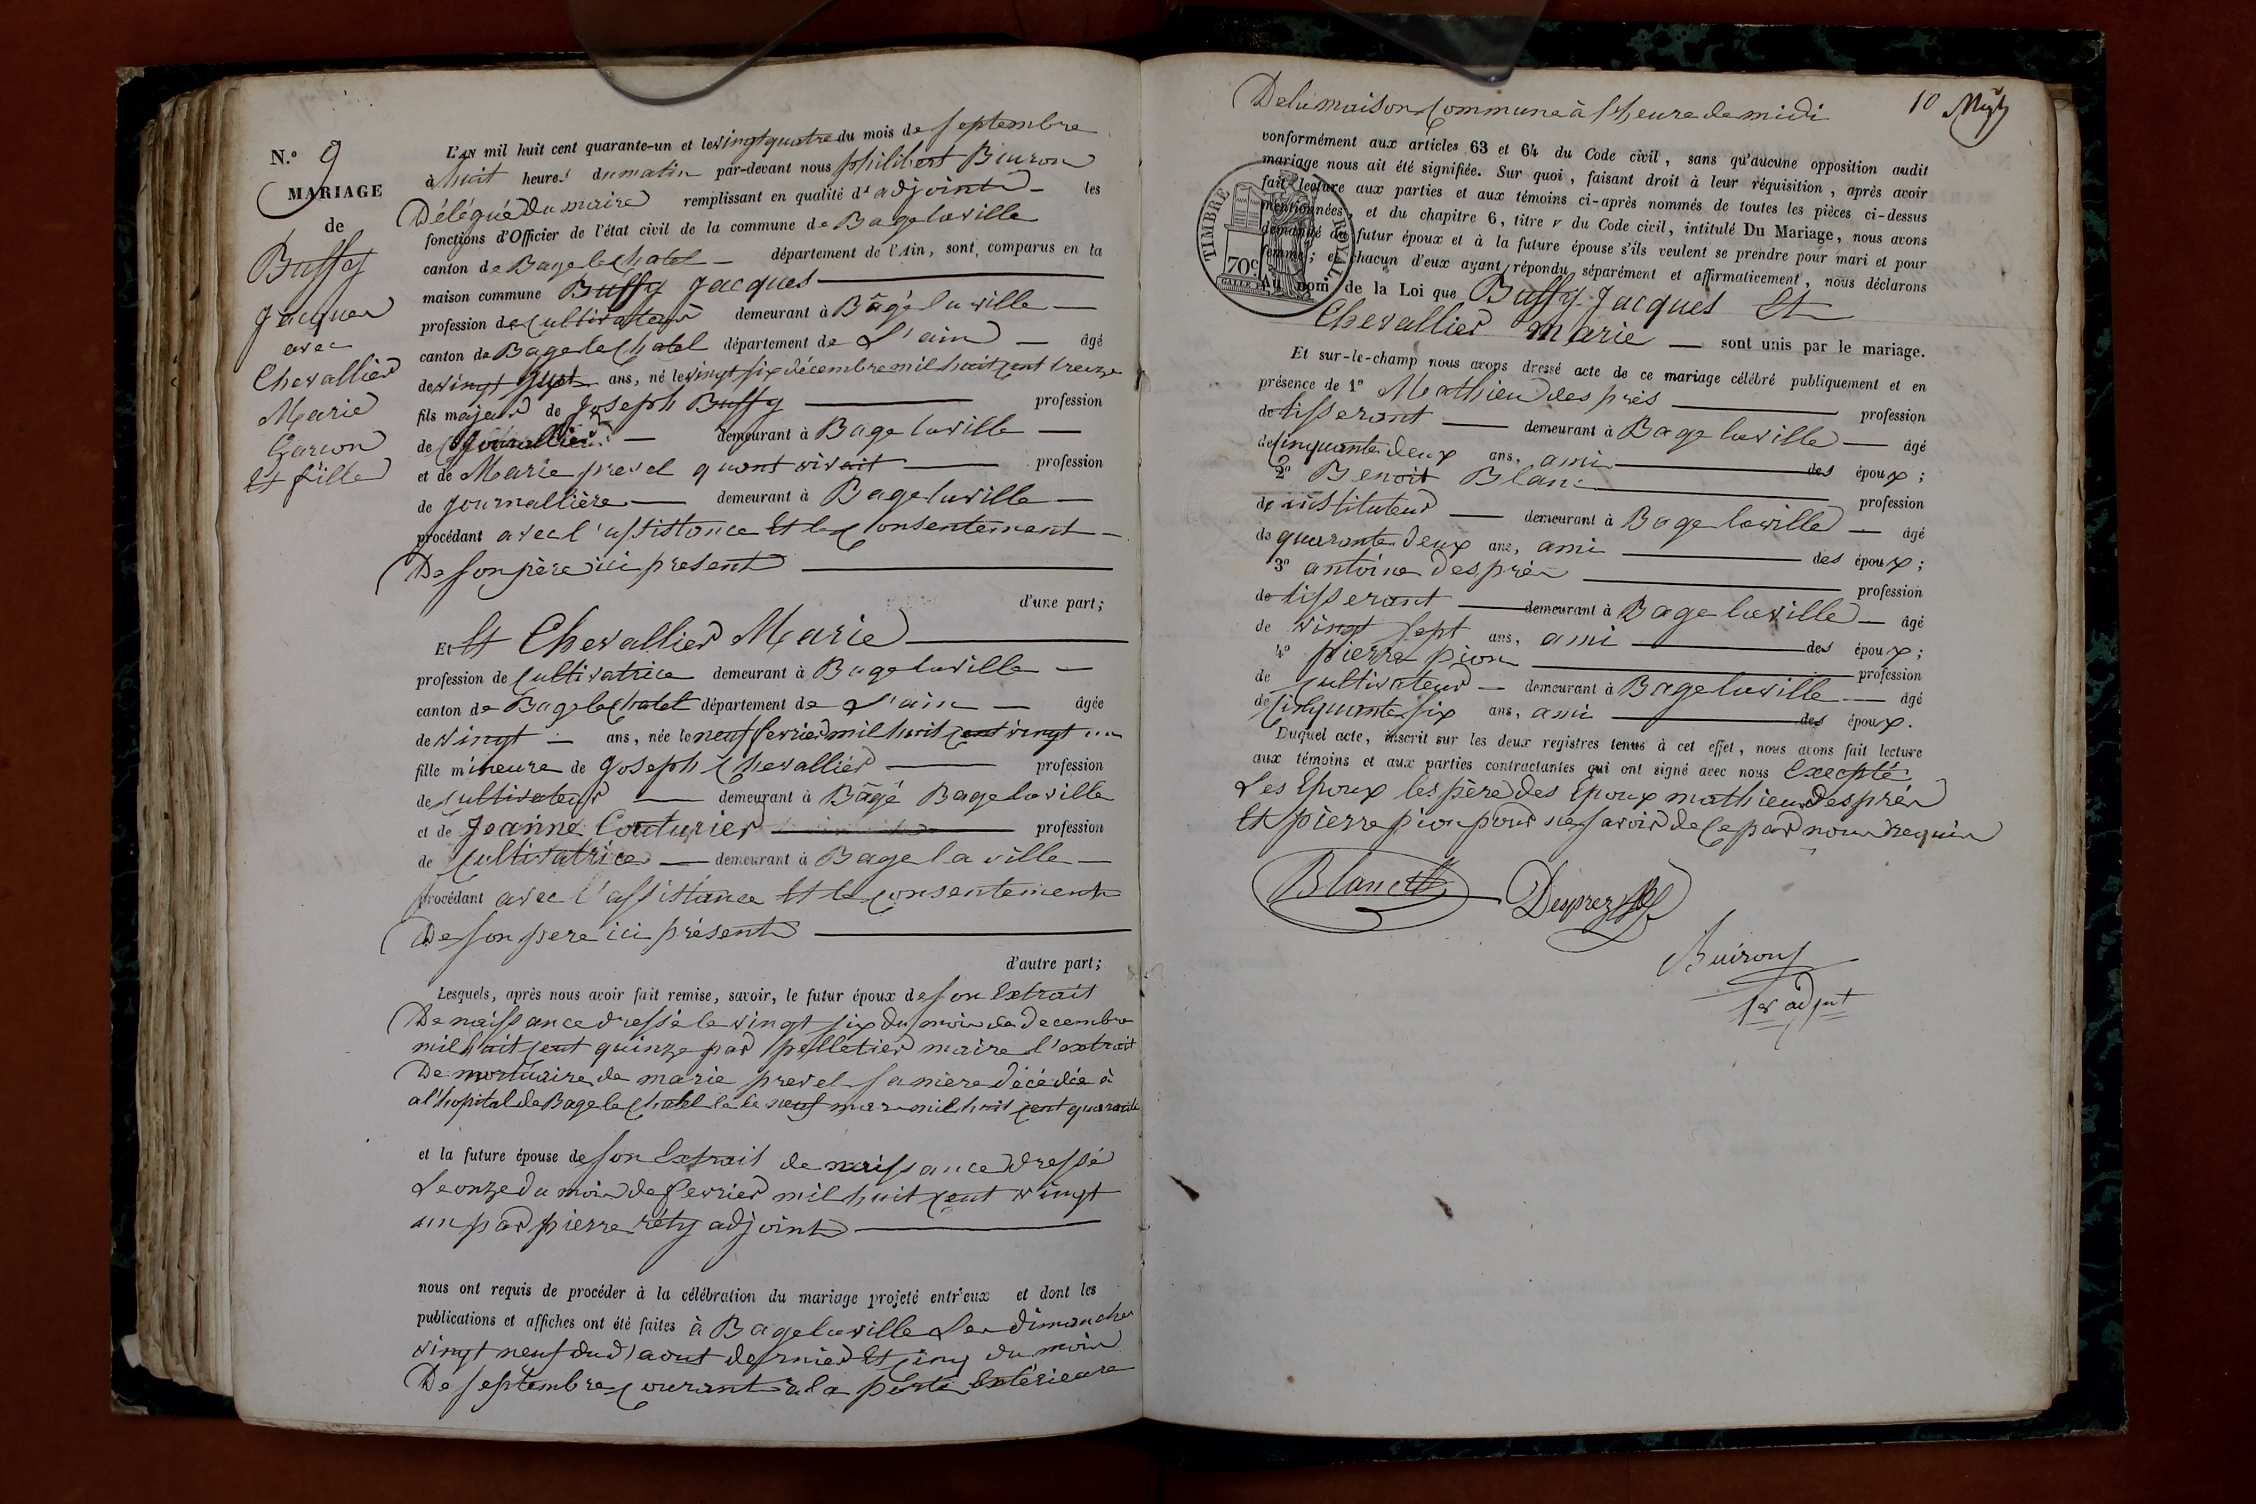 N.° 9
MARIAGE
de
Buffy
Jacques
avec
Chevallier
Marie
Garcon
Et fille
L'AN mil huit cent quarante-un et le vingt quatre du mois de septembre
à huit heures du matin par-devant nous philibert Buiron
Délégué du maire remplissant en qualité d' adjoint les
fonctions d'Officier de l'état civil de la commune de Bagelaville
canton de Bagelechatel département de l'Ain, sont comparus en la
maison commune Buffy Jacques
profession de Cultivateur demeurant à Bâgé la ville
canton de Bagelechatel département de L'ain âgé
de vingt sept ans, né le vingt six décembre mil huit cent treize
fils majeur de Joseph Buffy profession
de Journallier demeurant à Bagelaville
et de Marie prevel quant vivait profession
de Journallière demeurant à Bagelaville
procédant avec l'assistance Et le Consentement
De son père ici present
d'une part;
Et Et Chevallier Marie
profession de Cultivatrice demeurant à Bagelaville
canton de Bagelechatel département de L'ain âgée
de vingt ans, née le neuf fevrier mil huit cent vingt un
fille mineure de Joseph Chevallier profession
de Cultivateur demeurant à Bâgé Bagelaville
et de Jeanne Couturier profession
de Cultivatrice demeurant à Bagelaville
procédant avec l'assistance Et le consentement
De son pere ici présent
d'autre part;
Lesquels, après nous avoir fait remise, savoir, le futur époux de son Extrait
De naissance dressé le vingt six du mois de decembre
mil huit cent quinze par pelletier maire l'extrait
De mortuaire de marie prevel sa mère décédée à
a l'hopital de Bagelechatel le le neuf mars mil huit cent quarante
et la future épouse de son Extrait de naissance dressé
Le onze du mois de fevrier mil huit cent vingt
un par pierre réty adjoint
nous ont requis de procéder à la célébration du mariage projeté entr'eux et dont les
publications et affiches ont été faites à Bagelaville Les dimanches
vingt neuf du d aout dernier Et cinq du mois
De septembre courant à la porte Extérieure
10
De la maison Commune à l'heure de midi
conformément aux articles 63 et 64 du Code civil, sans qu'aucune opposition audit
mariage nous ait été signifiée. Sur quoi, faisant droit à leur réquisition, après avoir
fait lecture aux parties et aux témoins ci-après nommés de toutes les pièces ci-dessus
mentionnées, et du chapitre 6, titre V du Code civil, intitulé Du Mariage, nous avons
demandé au futur époux et à la future épouse s'ils veulent se prendre pour mari et pour
femme; et chacun d'eux ayant répondu séparément et affirmativement, nous déclarons
Au nom de la Loi que Buffy Jacques Et
TIMBRE ROYAL
70c
Chevallier Marie sont unis par le mariage.
Et sur-le-champ nous avons dressé acte de ce mariage célébré publiquement et en
présence de 1° Mathieu des prés profession
de tisserant demeurant à Bagelaville âgé
de Cinquante deux ans, ami des époux;
2° Benoit Blanc profession
de instituteur demeurant à Bagelaville âgé
de quarante deux ans, ami des époux;
3° antoine després profession
de tisserant demeurant à Bagelaville âgé
de vingt sept ans, ami des époux;
4° pierre pion profession
de Cultivateur demeurant à Bagelaville âgé
de Cinquante six ans, ami des époux.
Duquel acte, inscrit sur les deux registres tenus à cet effet, nous avons fait lecture
aux témoins et aux parties contractantes qui ont signé avec nous Excepté
Les Epoux les père des Epoux mathieu després
Et pierre pion pour ne savoir de ce par nous requis
Blanc
Desprez
Buiron
1er adjnt